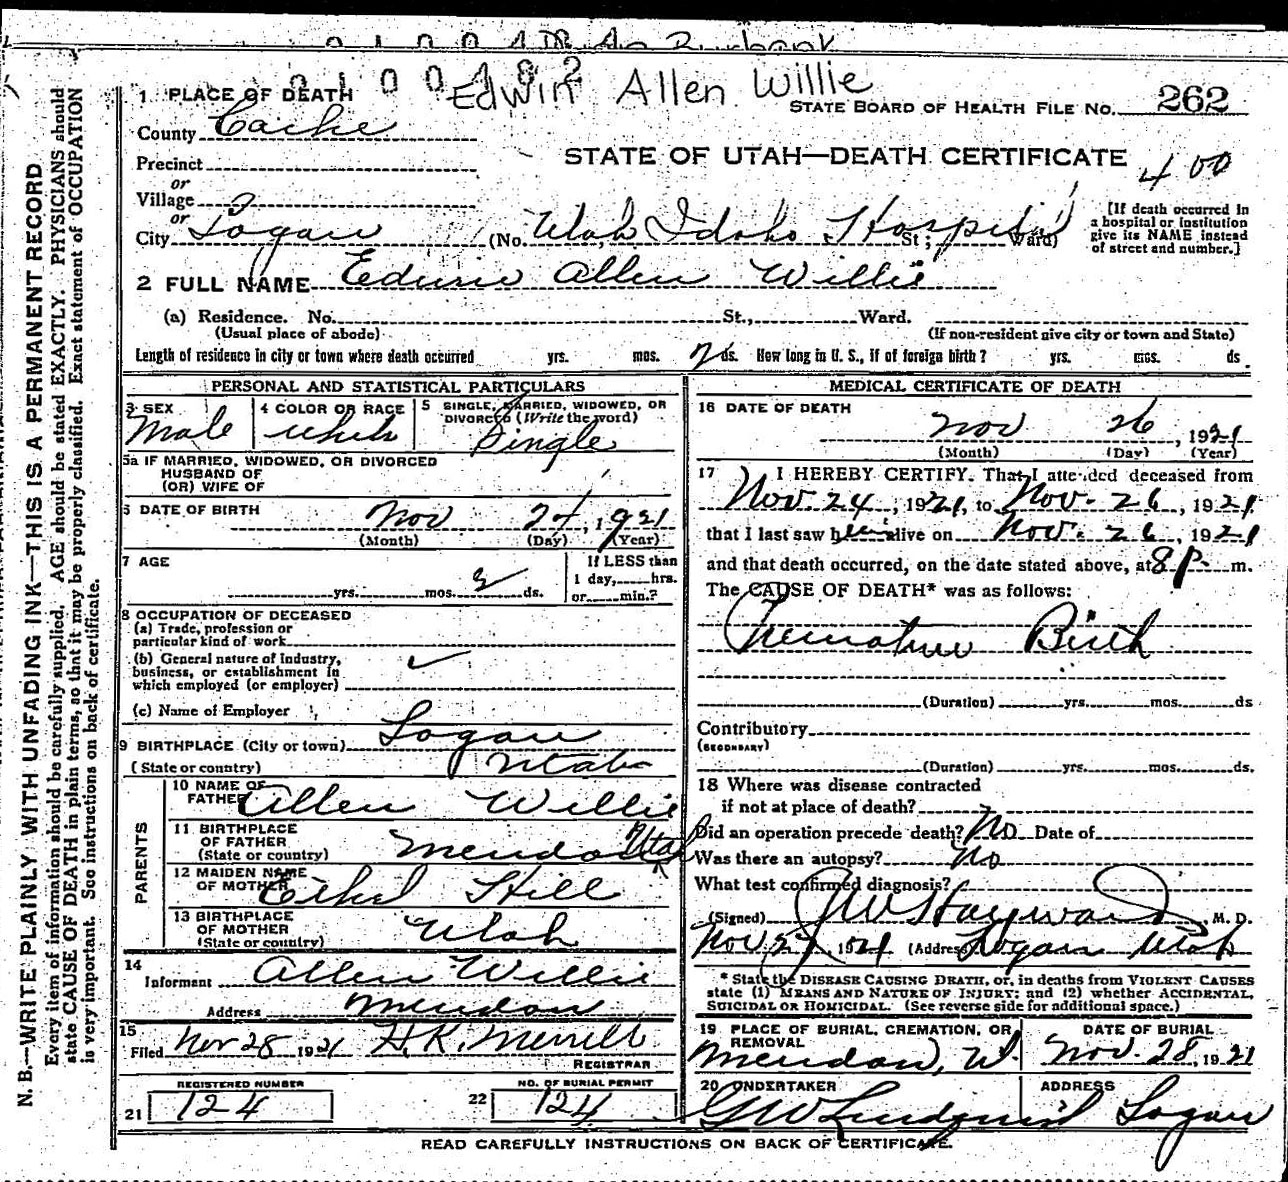 Edwin Allen Willie
1 PLACE OF DEATH
STATE BOARD OF HEALTH FILE NO. 262
County Cache
STATE OF UTAH—DEATH CERTIFICATE
400
Precinct
or
Village
or
City Logan (No. Utah Idaho Hospital St; Ward)
[If death occurred in a hospital or institution give its NAME instead of street and number.]
2 FULL NAME Edwin Allen Willie
(a) Residence. No. St., Ward.
(Usual place of abode) (If non-resident give city or town and State)
Length of residence in city or town where death occurred yrs. mos. 2 ds. How long in U. S., if of foreign birth? yrs. mos. ds
PERSONAL AND STATISTICAL PARTICULARS
3 SEX Male
4 COLOR OR RACE White
5 SINGLE, MARRIED, WIDOWED, OR DIVORCED (Write the word) Single
5a IF MARRIED, WIDOWED, OR DIVORCED
HUSBAND OF
(OR) WIFE OF
6 DATE OF BIRTH Nov 24, 1921
(Month) (Day) (Year)
7 AGE
yrs. mos. 2 ds.
If LESS than
1 day, hrs.
or min.?
8 OCCUPATION OF DECEASED
(a) Trade, profession or
particular kind of work
(b) General nature of industry,
business, or establishment in
which employed (or employer)
(c) Name of Employer
9 BIRTHPLACE (City or town) Logan
(State or country) Utah
PARENTS
10 NAME OF FATHER Allen Willie
11 BIRTHPLACE OF FATHER (State or country) Mendon Utah
12 MAIDEN NAME OF MOTHER Ethel Hill
13 BIRTHPLACE OF MOTHER (State or country) Utah
14
Informant Allen Willie
Address Mendon
15
Filed Nov 28 1921 H. K. Merrill
REGISTRAR
REGISTERED NUMBER
21 124
NO. OF BURIAL PERMIT
22 124
MEDICAL CERTIFICATE OF DEATH
16 DATE OF DEATH
Nov 26, 1921
(Month) (Day) (Year)
17 I HEREBY CERTIFY, That I attended deceased from
Nov. 24, 1921, to Nov. 26, 1921
that I last saw him alive on Nov. 26, 1921
and that death occurred, on the date stated above, at 8 P. m.
The CAUSE OF DEATH* was as follows:
Premature Birth
(Duration) yrs. mos. ds
Contributory
(SECONDARY)
(Duration) yrs. mos. ds.
18 Where was disease contracted
if not at place of death?
Did an operation precede death? No Date of
Was there an autopsy? No
What test confirmed diagnosis?
(Signed) J W Hayward, M. D.
Nov 27 1921 (Address) Logan Utah
* State the DISEASE CAUSING DEATH, or, in deaths from VIOLENT CAUSES
state (1) MEANS AND NATURE OF INJURY; and (2) whether ACCIDENTAL,
SUICIDAL OR HOMICIDAL. (See reverse side for additional space.)
19 PLACE OF BURIAL, CREMATION, OR REMOVAL
Mendon, U.
DATE OF BURIAL
Nov. 28, 1921
20 UNDERTAKER
G W Lindquist
ADDRESS
Logan
READ CAREFULLY INSTRUCTIONS ON BACK OF CERTIFICATE.
N. B.—WRITE PLAINLY WITH UNFADING INK—THIS IS A PERMANENT RECORD
Every item of information should be carefully supplied. AGE should be stated EXACTLY. PHYSICIANS should
state CAUSE OF DEATH in plain terms, so that it may be properly classified. Exact statement of OCCUPATION
is very important. See instructions on back of certificate.